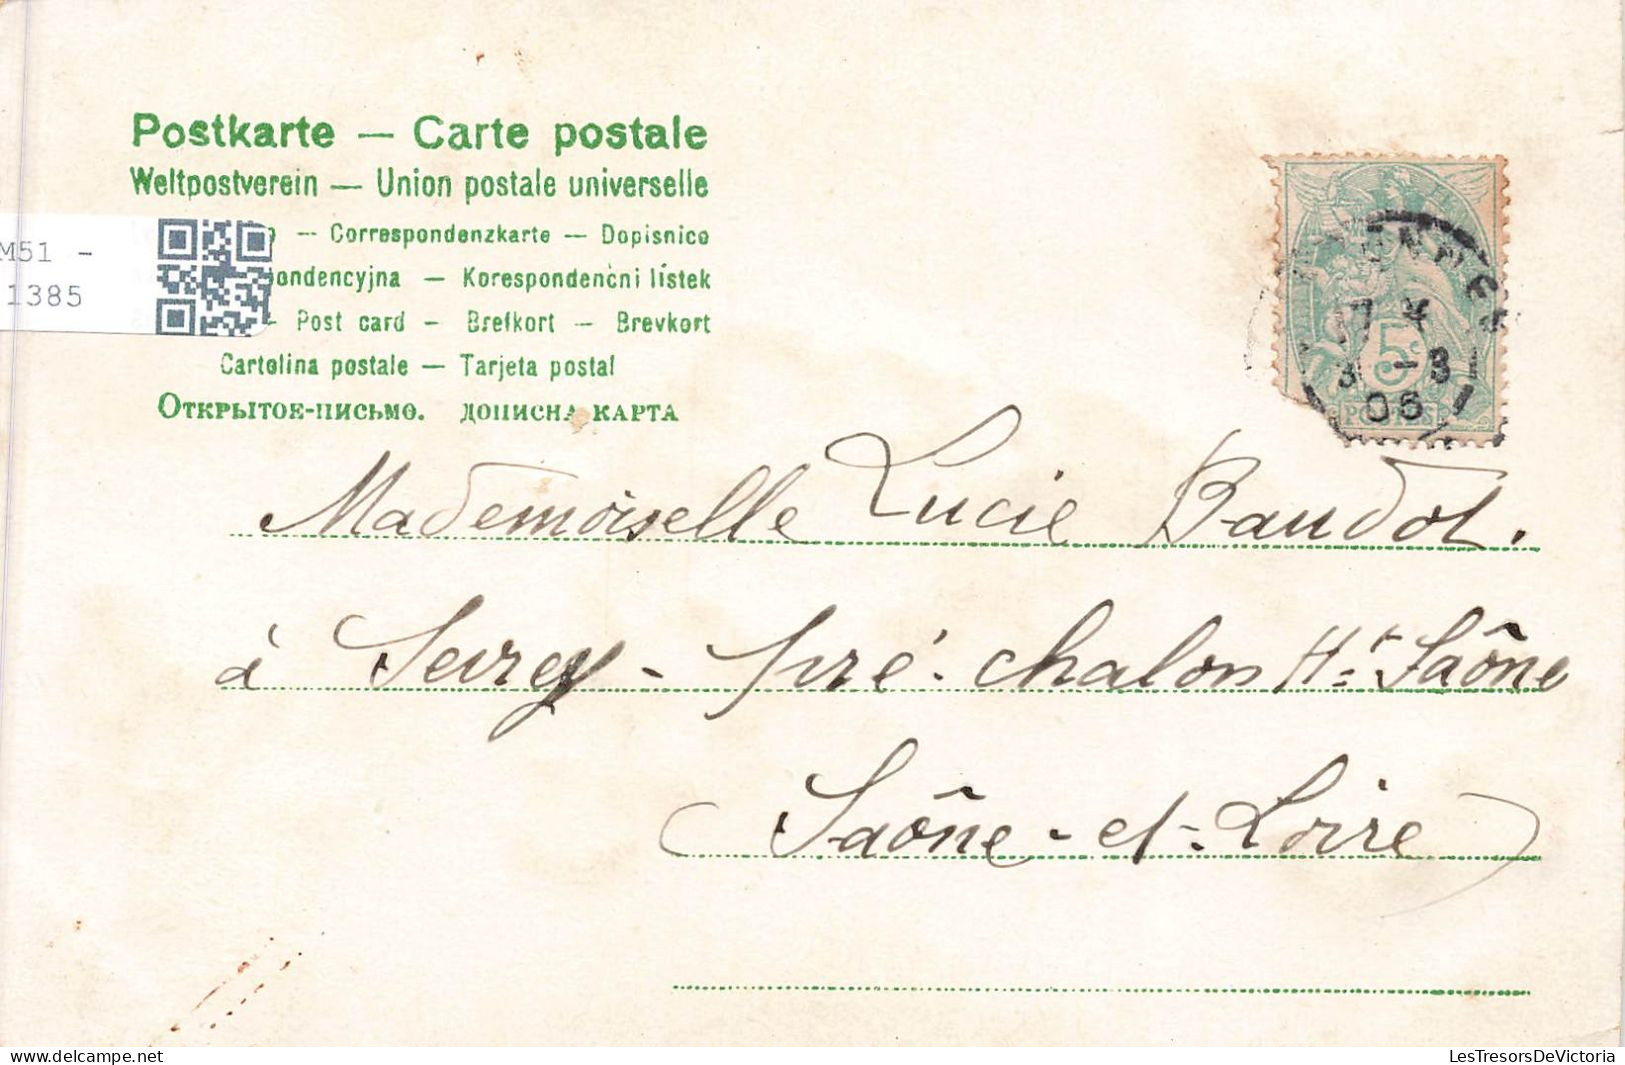 Postkarte — Carte postale
Weltpostverein — Union postale universelle
— Correspondenzkarte — Dopisnice
M51 -
ondencyjna — Korespondenční lístek
1385
- Post card - Brefkort - Brevkort
Cartolina postale — Tarjeta postal
ОТКРЫТОЕ-ПИСЬМО. ДОПИСНА КАРТА
17 *
31 -3
05
5
POSTES
Mademoiselle Lucie Baudot.
à Sevrey - pré - chalon Ht Saône
(Saône-et-Loire)
delcampe.net
LesTresorsDeVictoria